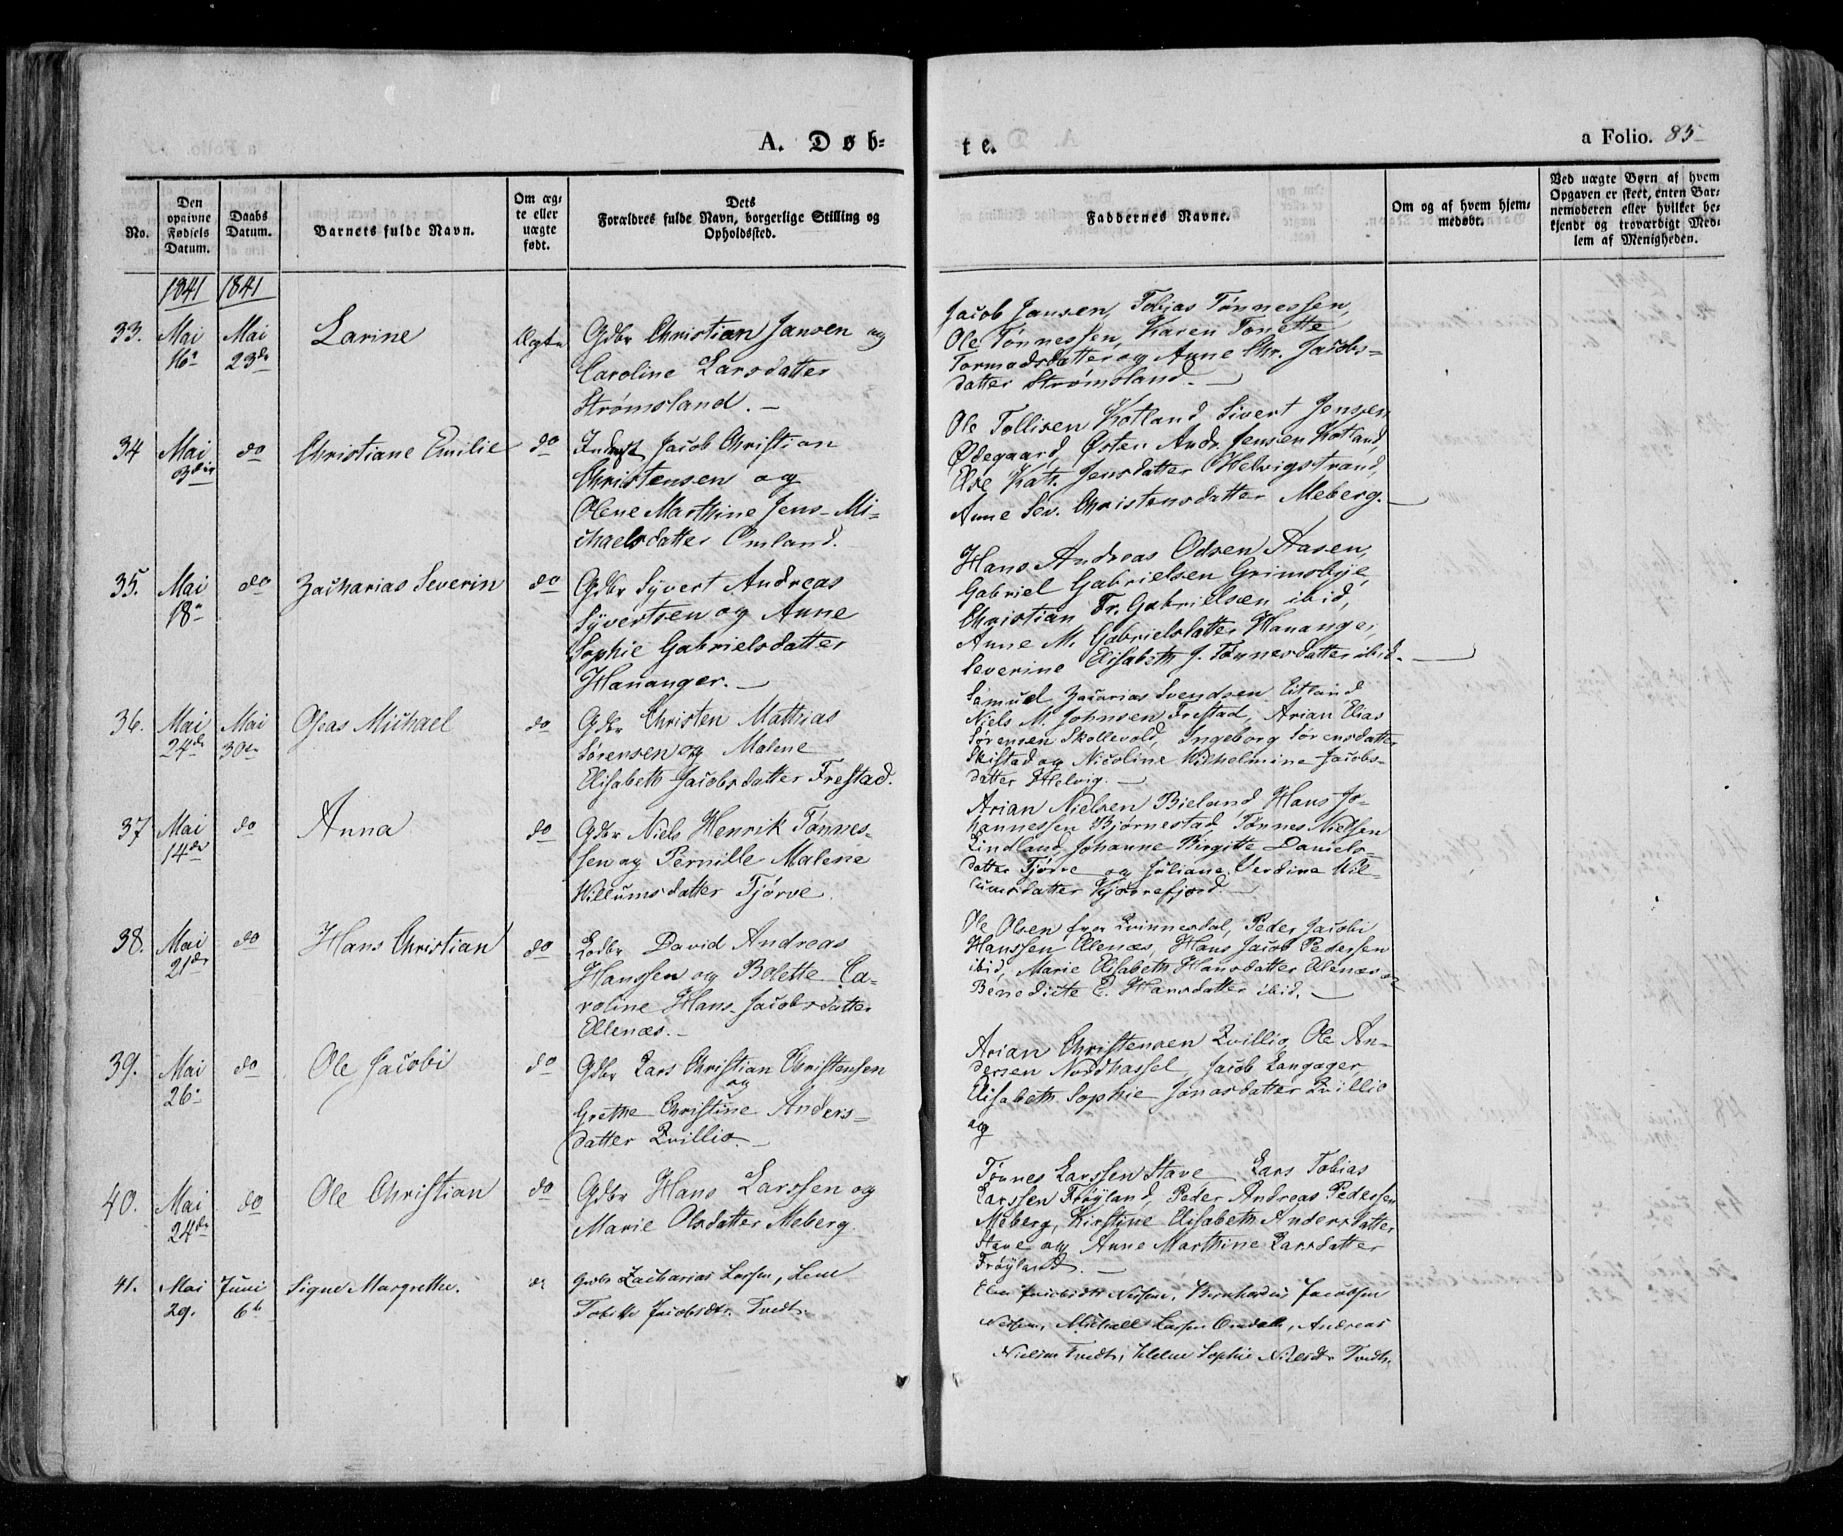 A. Døb=
te.
a Folio. 85
No.
Den opgivne Fødsels Datum.
Daabs Datum.
Barnets fulde Navn.
Om æg-
te eller
uægte
født.
Dets
Forældres fulde Navn, borgerlige Stilling og
Opholdssted.
Faddernes Navne.
Om og af hvem hjem-
medøbt.
Ved uægte Børn af hvem
Opgaven er skeet, enten Bar-
nemoderen eller hvilket be-
kjendt og troværdigt Med-
lem af Menigheden.
1841 1841
33. Mai 16de Mai 23de Larine Ægte
Gdbr Christian Jansen og
Caroline Larsdatter
Strømsland. –
Jacob Jansen, Tobias Tønnessen,
Ole Tønnessen, Karen Tonette
Tormodsdatter og Anne Chr. Jacobs=
datter Strømsland. –
34 Mai 3die do Christiane Emilie do
Inderst Jacob Christian
Christensen og
Olene Marthine Jens-Mi-
chaelsdatter Omland.
Ole Tollisen Kotland, Sivert Jensen
Ødegaard, Østen Andr. Jensen Kotland,
Else Kath. Jensdatter Helvigstrand,
Anne Sev. Christensdatter Meberg. –
35. Mai 18de do Zacharias Severin do
Gdbr Syvert Andreas
Syvertsen og Anne
Sophie Gabrielsdatter
Hananger. –
Hans Andreas Odsen Aasen,
Gabriel Gabrielsen Grimsbye,
Christian Fr. Gabrielsen ibid,
Anne M. Gabrielsdatter Hananger,
Severine Elisabeth J. Tønnesdatter ibid. –
36. Mai 24de Mai 30te Oseas Michael do
Gdbr Christen Mathias
Sørensen og Malene
Elisabeth Jacobsdatter Frestad.
Samuel Zacarias Svendsen Eitland
Niels M. Johnsen Frestad, Arian Elias
Sørensen Skollevold, Ingeborg Sørensdatter
Skistad og Nicoline Wilhelmine Jacobs-
datter Helvig. –
37 Mai 14de do Anna do
Gdbr Niels Henrik Tønnes-
sen og Pernille Malene
Willumsdatter Tjørve.
Arian Nielsen Bieland, Hans Jo-
hannessen Bjørnestad, Tønnes Nielsen
Lindland, Johanne Birgitte Daniels-
datter Tjørve og Juliane Verdine Wil-
lumsdatter Kjørrefjord. –
38. Mai 21de do Hans Christian do
Gdbr David Andreas
Hanssen og Bolette Ca-
roline Hans-Jacobsdatter
Ellenæs. –
Ole Olsen fra Qvinnesdal, Peder Jacobi
Hanssen Ellenæs, Hans Jacob Pedersen
ibid, Marie Elisabeth Hansdatter Ellenæs og
Benedicte E. Hansdatter ibid. –
39. Mai 26de do Ole Jacobi do
Gdbr Lars Christian Christensen
og
Grethe Christine Anders-
datter Qvillio. –
Arian Christensen Qvillio, Ole An-
dersen Nordhassel, Jacob Langager,
Elisabeth Sophie Jonasdatter Qvillio
og
40. Mai 24de do Ole Christian do
Gdbr Hans Larssen og
Marie Olsdatter Meberg.
Tønnes Larssen Stave, Lars Tobias
Larssen Frøyland, Peder Andreas Pedersen
Meberg, Kirstine Elisabeth Andersdatter
Stave og Anne Marthine Larsdatter
Frøyland. –
41. Mai 29. Juni 6te Signe Margrethe. do
Gdbr Zacharias Larsen, Lene
Tobitte Jacobsdtr. Tvedt.
Jacobsdtr Nesheim, Bernhardus Jacobsen
Michael Larsen Omdal, Andreas
Nielsen Tvedt, Helene Sophie Nielsdtr Tvedt.